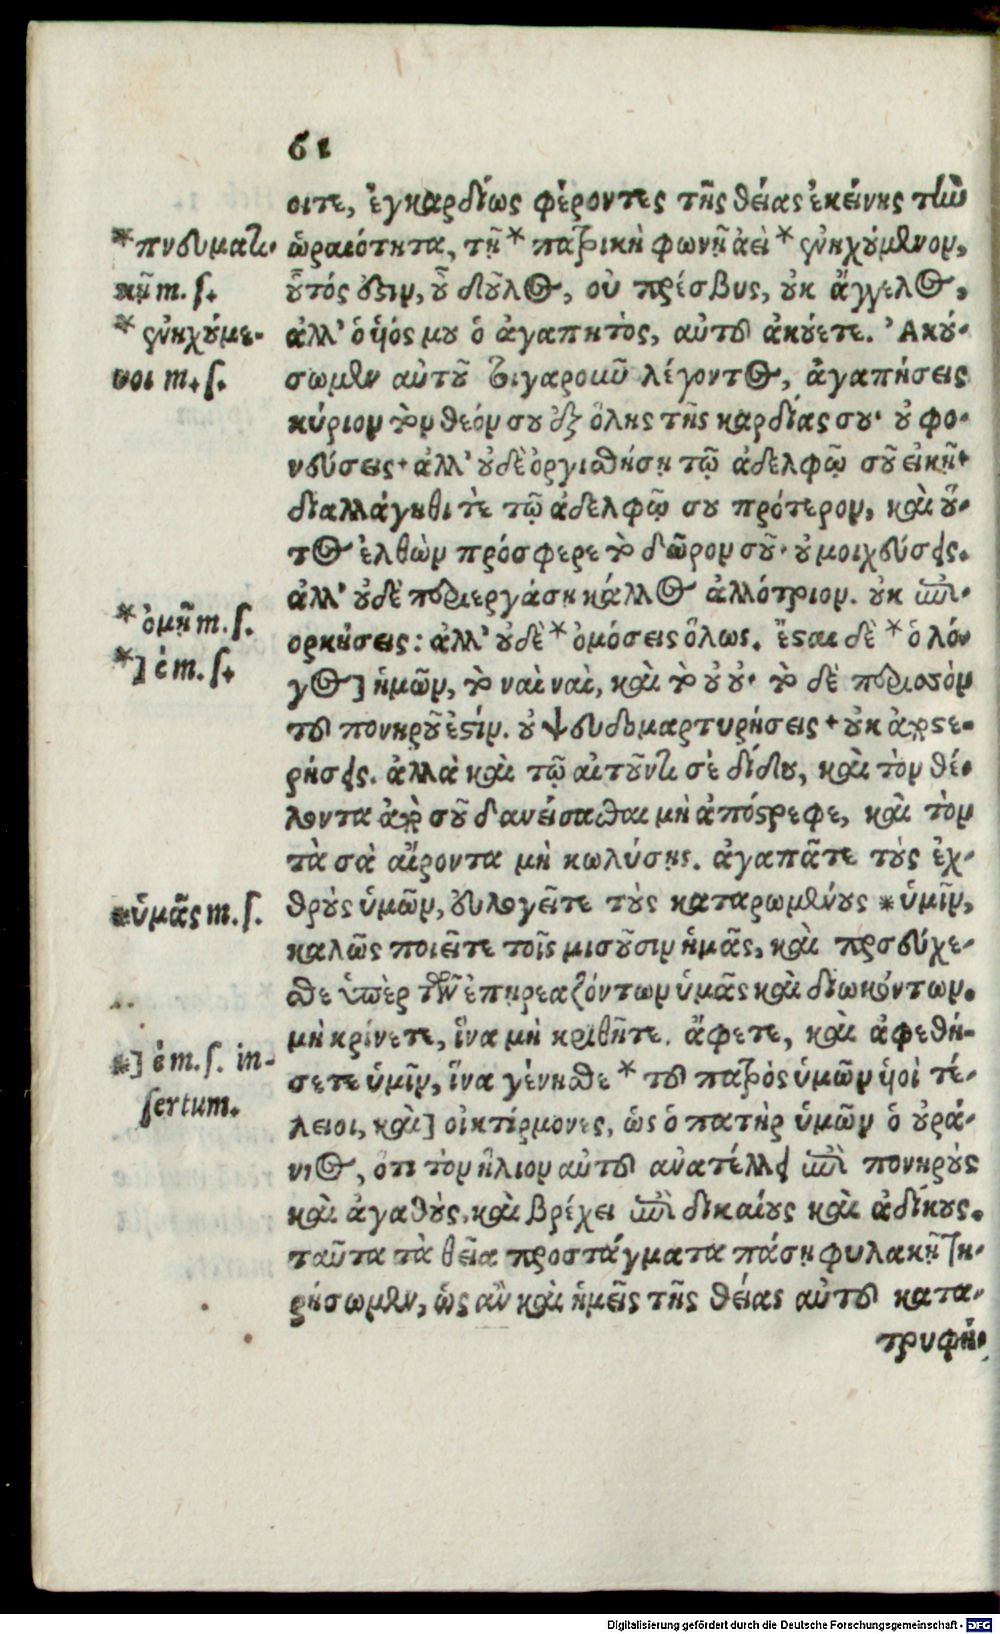 61
οιτε, ἐγκαρδίως φέροντες τῆς θείας ἐκείνης τὴν
ὡραιότητα, τῇ * πατρικῇ φωνῇ ἀεὶ * συνηχούμενον,
οὗτός ἐστιν, οὐ δοῦλος, οὐ πρέσβυς, οὐκ ἄγγελος,
ἀλλ’ ὁ υἱός μου ὁ ἀγαπητὸς, αὐτοῦ ἀκούετε. ’Ακού-
σωμεν αὐτοῦ τιγαροῦν λέγοντος, ἀγαπήσεις
κύριον τὸν θεόν σου ἐξ ὅλης τῆς καρδίας σου· οὐ φο-
νεύσεις· ἀλλ’ οὐδὲ ὀργισθήσῃ τῷ ἀδελφῷ σοῦ εἰκῆ·
διαλλάγηθι τὲ τῷ ἀδελφῷ σου πρότερον, καὶ οὕ-
τος ἐλθὼν πρόσφερε τὸ δῶρον σοῦ· οὐ μοιχεύσεις.
ἀλλ’ οὐδὲ περιεργάσῃ κάλλος ἀλλότριον. οὐκ ἐπι-
ορκήσεις: ἀλλ’ οὐδὲ * ὀμόσεις ὅλως. ἔσται δὲ * ὁ λό-
γος] ἡμῶν, τὸ ναὶ ναὶ, καὶ τὸ οὐ οὐ· τὸ δὲ περισσὸν
τοῦ πονηροῦ ἐστίν. οὐ ψευδομαρτυρήσεις· οὐκ ἀποστε-
ρήσεις. ἀλλὰ καὶ τῷ αἰτοῦντι σὲ δίδου, καὶ τὸν θέ-
λοντα ἀπὸ σοῦ δανείσασθαι μὴ ἀπόστρεφε, καὶ τὸν
τὰ σὰ αἴροντα μὴ κωλύσῃς. ἀγαπᾶτε τοὺς ἐχ-
θροὺς ὑμῶν, εὐλογεῖτε τοὺς καταρωμένους * ὑμῖν,
καλῶς ποιεῖτε τοῖς μισοῦσιν ἡμᾶς, καὶ προσεύχε-
σθε ὑπὲρ τῶν ἐπηρεαζόντων ὑμᾶς καὶ διωκόντων.
μὴ κρίνετε, ἵνα μὴ κριθῆτε. ἄφετε, καὶ ἀφεθή-
σετε ὑμῖν, ἵνα γένησθε * τοῦ πατρὸς ὑμῶν υἱοὶ τέ-
λειοι, καὶ] οἰκτίρμονες, ὡς ὁ πατὴρ ὑμῶν ὁ οὐρά-
νιος, ὅτι τὸν ἥλιον αὐτοῦ ἀνατέλλει ἐπὶ πονηροὺς
καὶ ἀγαθοὺς, καὶ βρέχει ἐπὶ δικαίους καὶ ἀδίκους.
ταῦτα τὰ θεῖα προστάγματα πάσῃ φυλακῇ τη-
ρήσωμεν, ὡς ἂν καὶ ἡμεῖς τῆς θείας αὐτοῦ κατα-
τρυφή-
* πνευματι-
κῇ m. s.
* συνηχούμε-
νοι m. s.
* ὀμῇ m. s.
*] ἐ m. s.
* ὑμᾶς m. s.
*] ἐ m. s. in-
sertum.
Digitalisierung gefördert durch die Deutsche Forschungsgemeinschaft - DFG